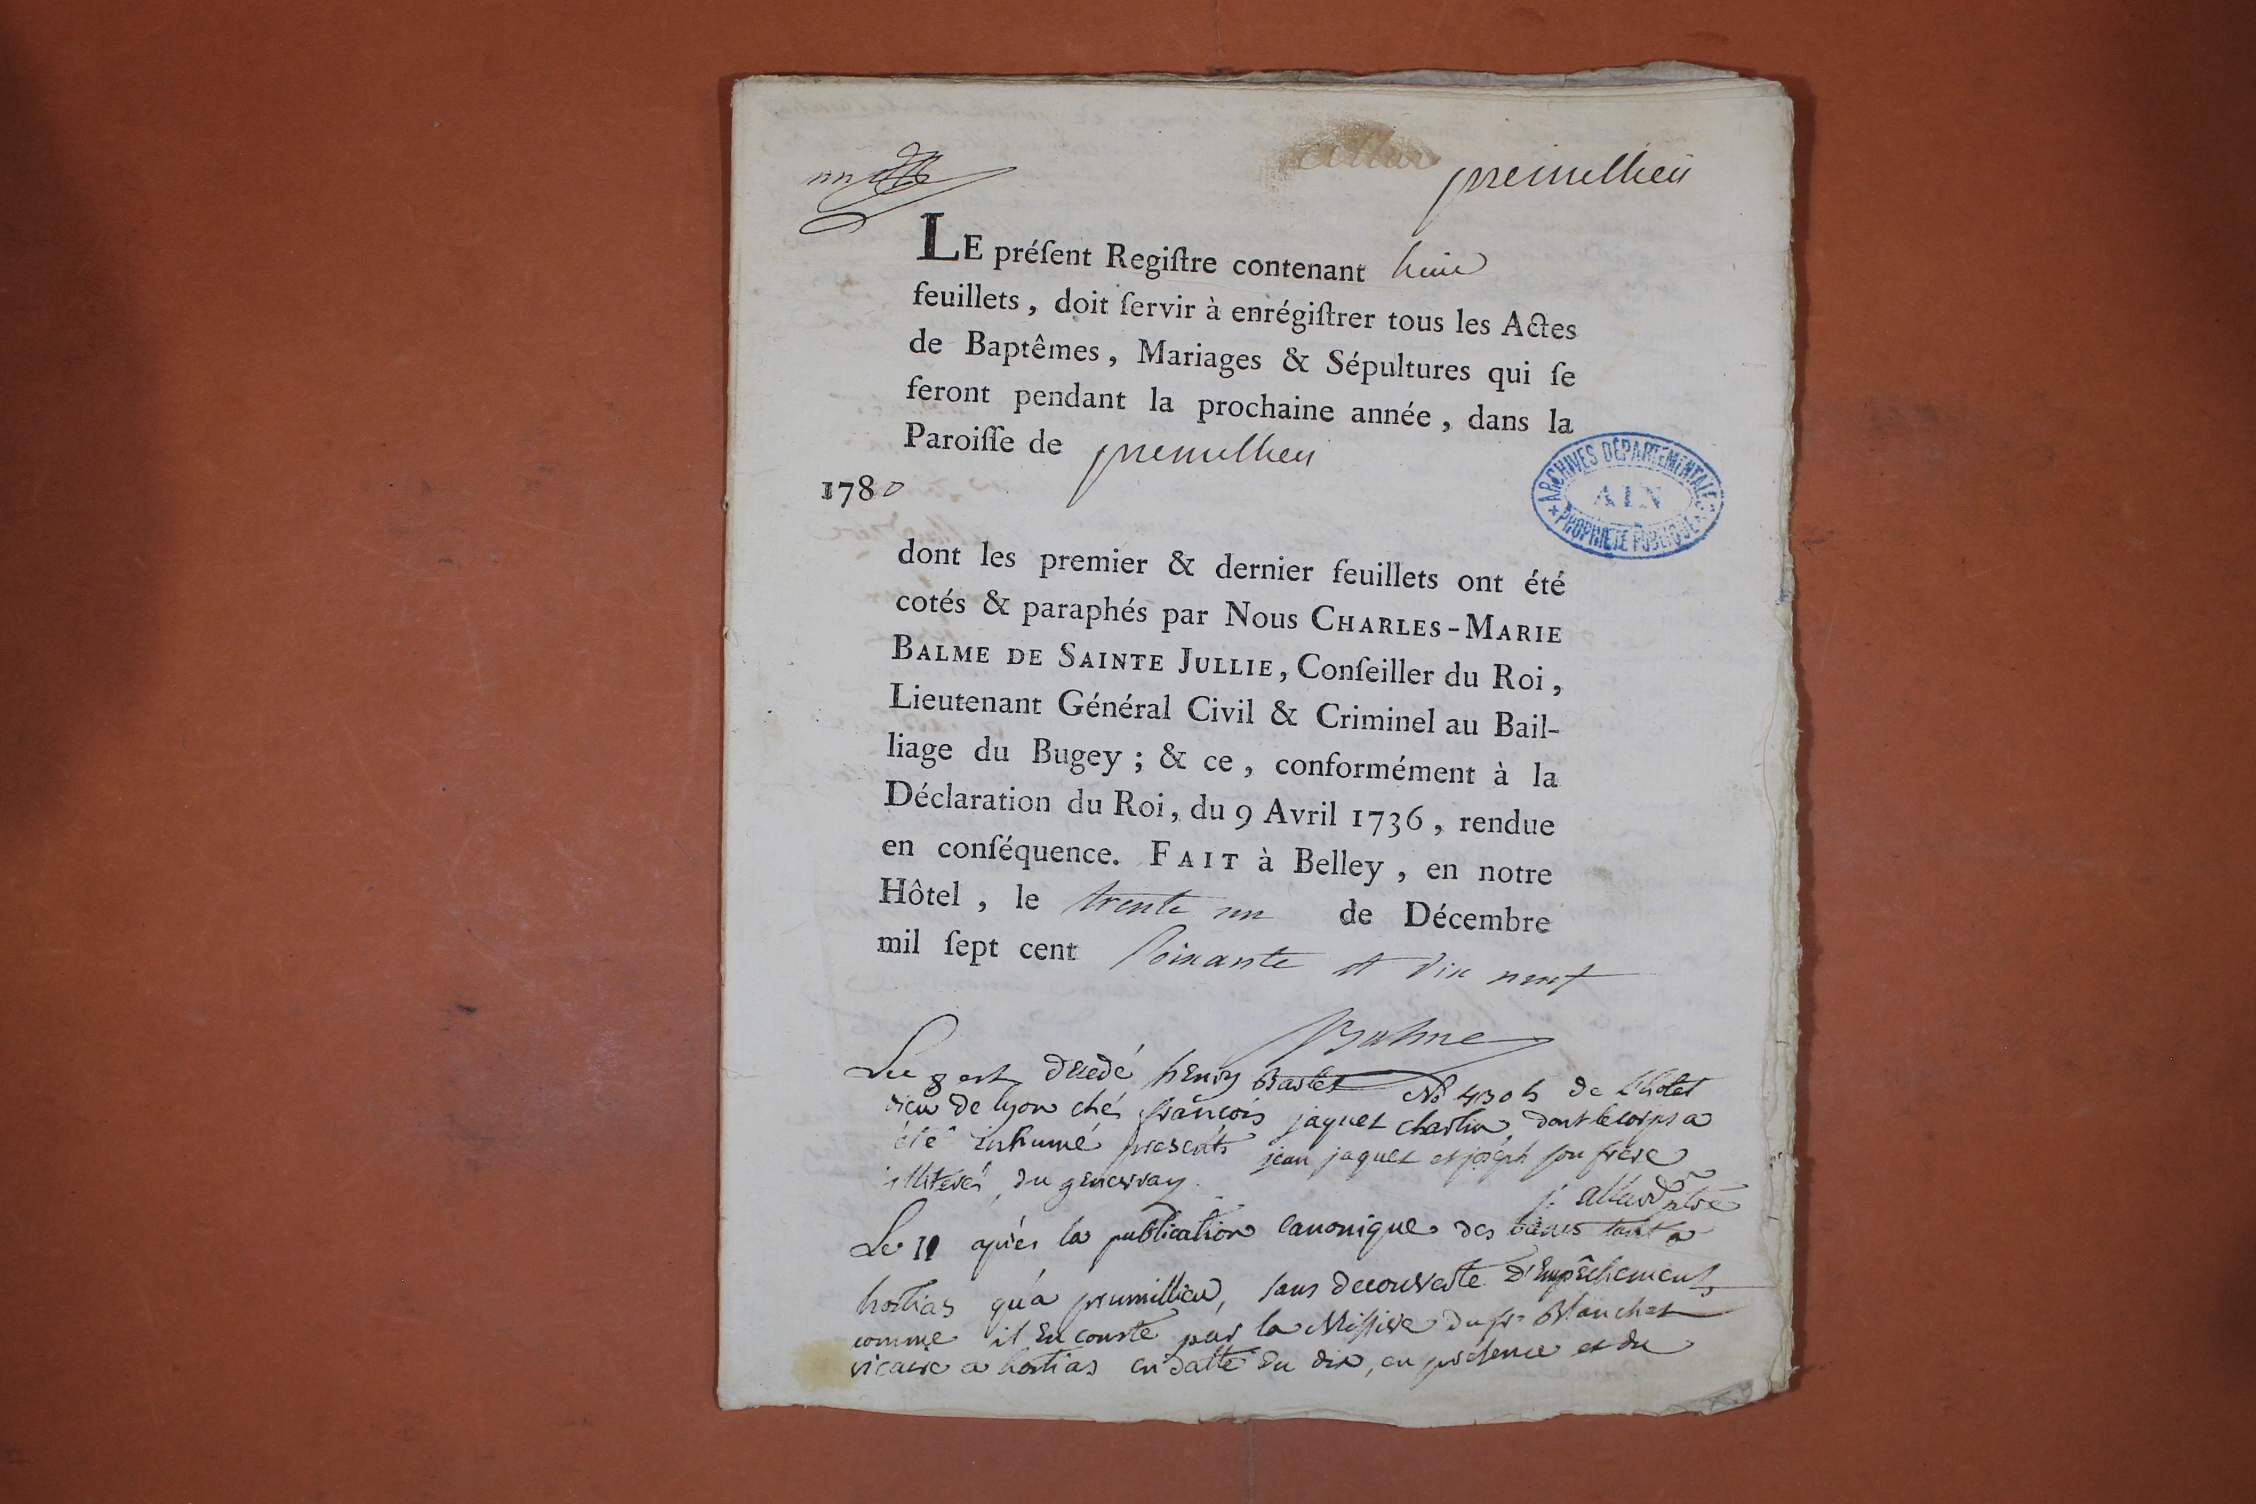 premillieu
LE préſent Regiſtre contenant huit
feuillets, doit ſervir à enrégiſtrer tous les Actes
de Baptêmes, Mariages & Sépultures qui ſe
feront pendant la prochaine année, dans la
Paroiſſe de premillieu
1780
ARCHIVES DÉPARTEMENTALES
AIN
PROPRIÉTÉ PUBLIQUE
dont les premier & dernier feuillets ont été
cotés & paraphés par Nous CHARLES-MARIE
BALME DE SAINTE JULLIE, Conſeiller du Roi,
Lieutenant Général Civil & Criminel au Bail-
liage du Bugey; & ce, conformément à la
Déclaration du Roi, du 9 Avril 1736, rendue
en conſéquence. FAIT à Belley, en notre
Hôtel, le trente un de Décembre
mil ſept cent soixante et dix neuf
Balme
Le 8 est décédé henry de L'hotel
dieu de lyon ché françois jaquet charlin, dont le corps a
été inhumé presents jean jaquet et joseph son frere
illiterés, du genevray.
j. allard
Le 11 après la publication canonique des bans tant a
hostias qu'a premillieu, sans decouverte d'Empêchement
comme il en conste par la Missive du sr Blanchet
vicaire a hostias en datte du dix, en présence et du